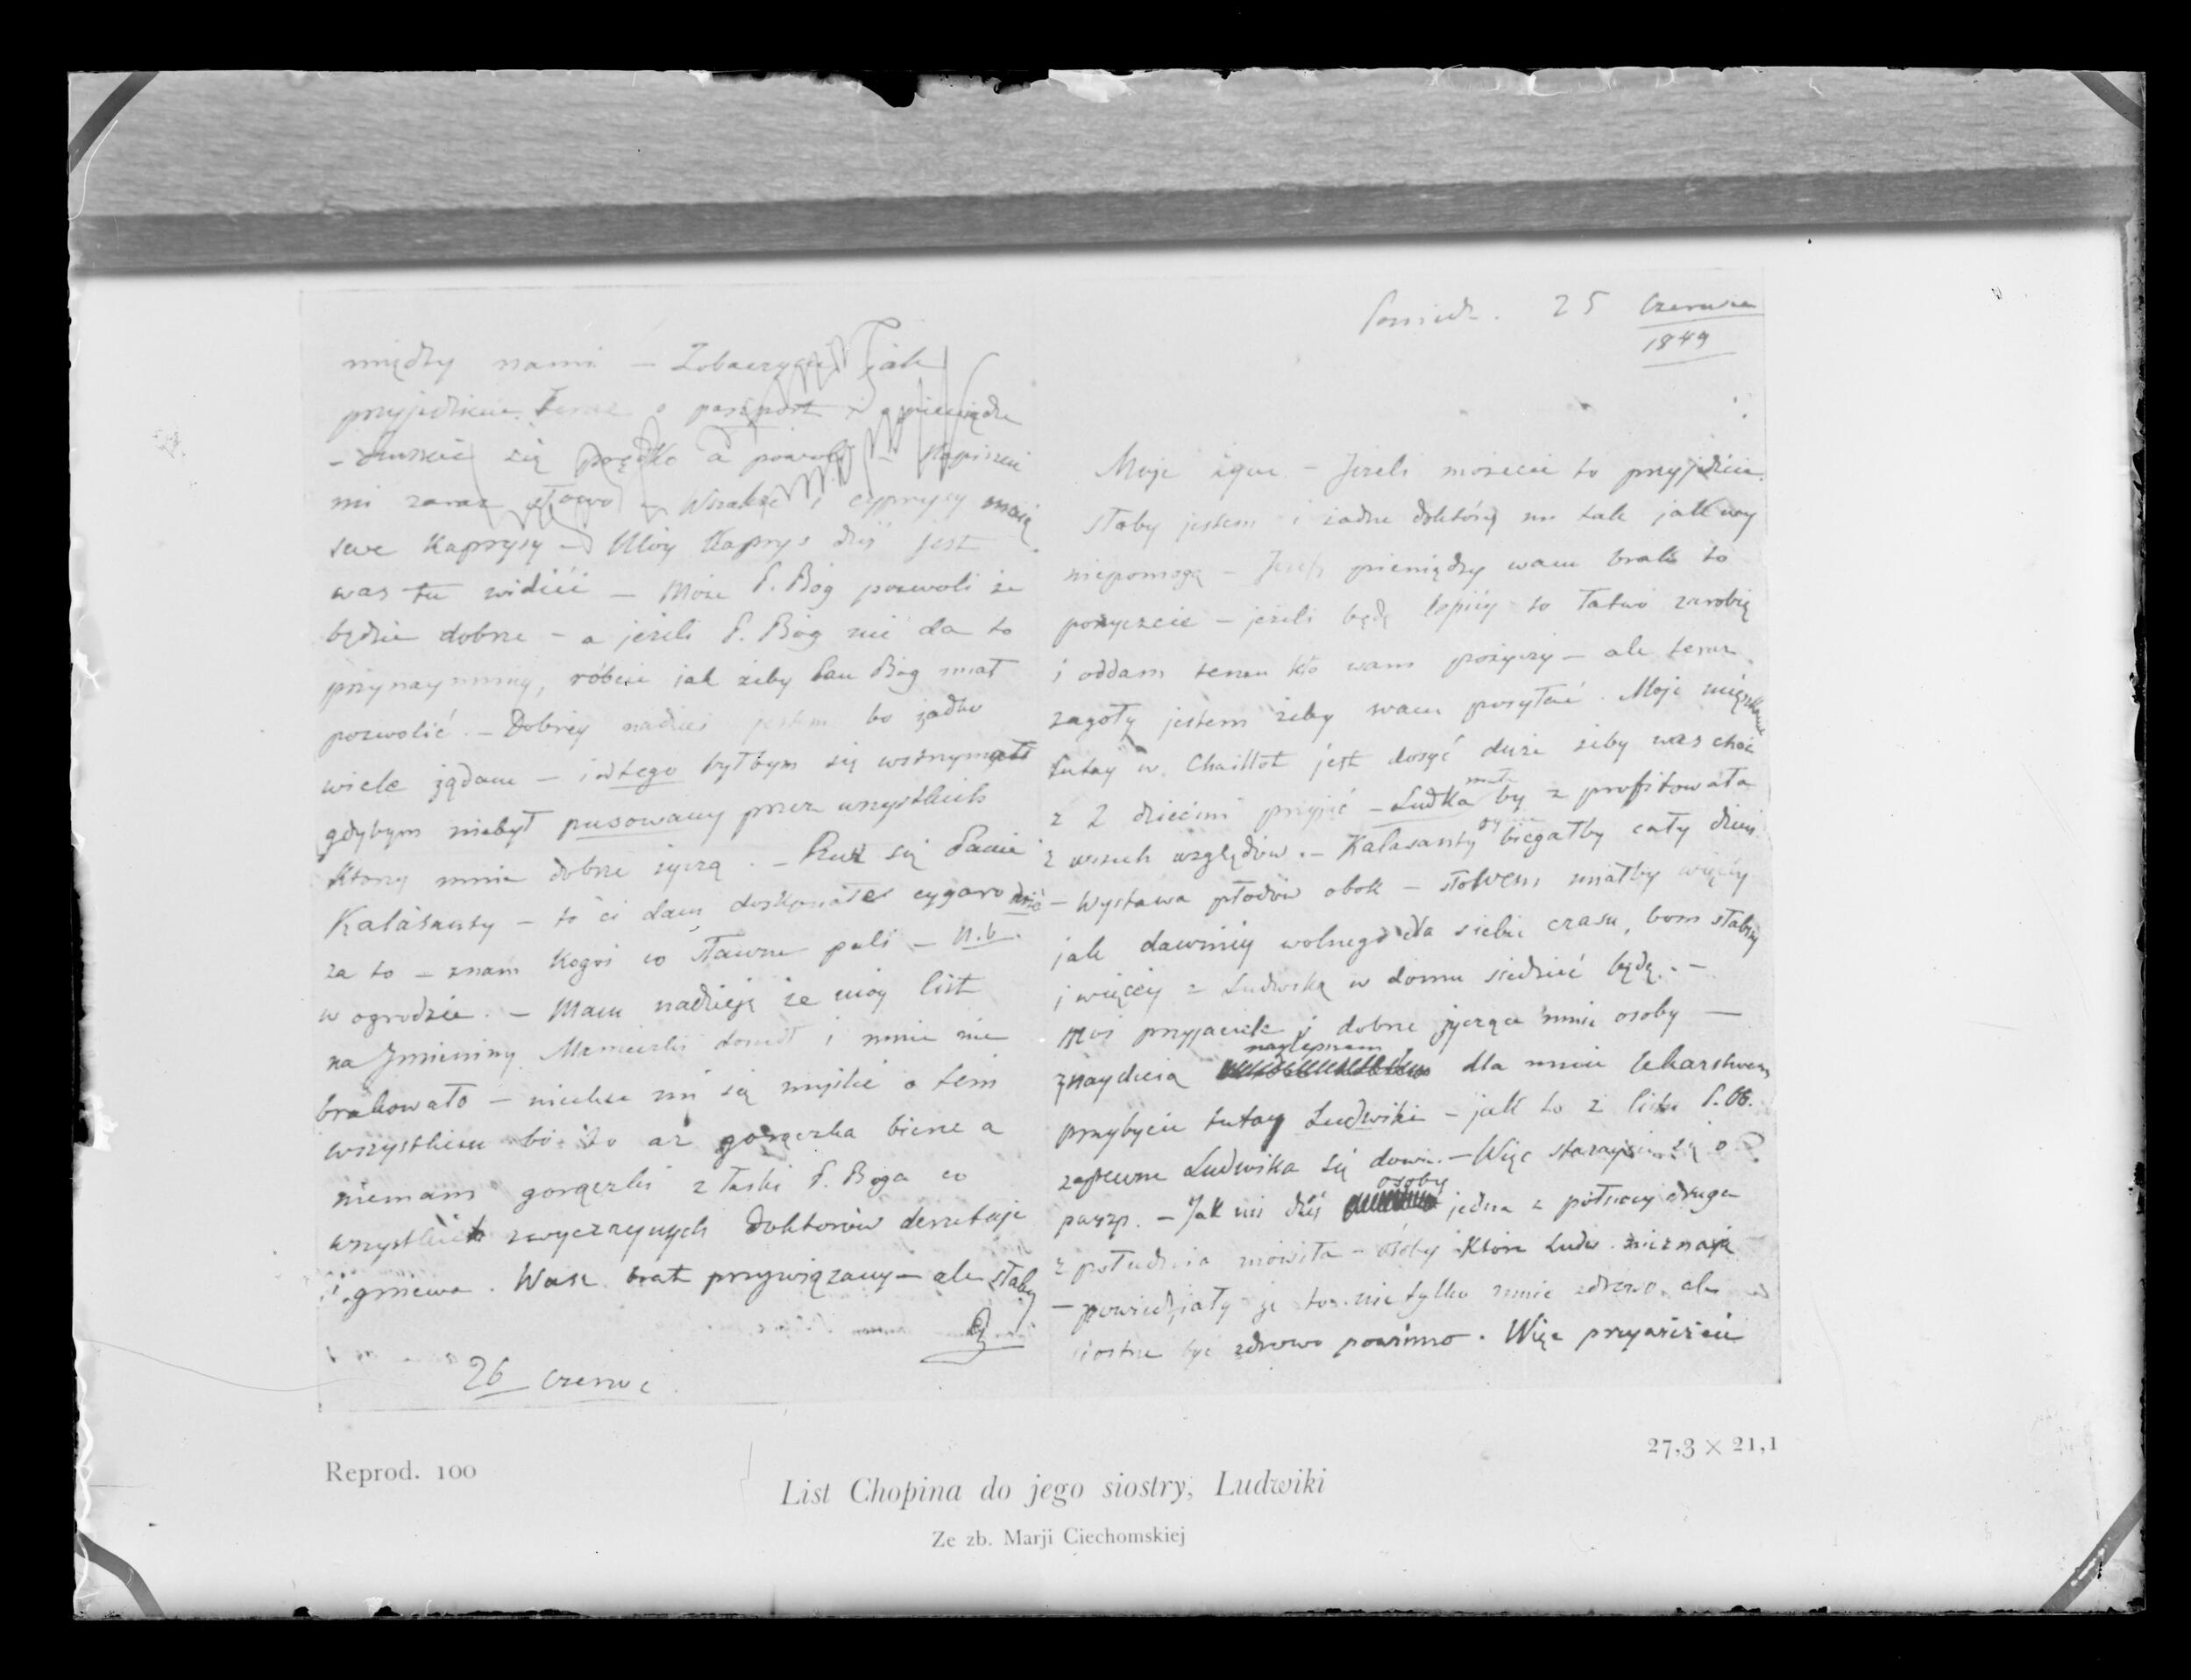 Poniedz. 25 Czerwca
1849
Moje życie – Jeżeli możecie to przyjedźcie.
Słaby jestem i żadne doktóry mi tak jak wy
niepomogą – Jeżeli pieniędzy wam brak to
pożyczcie – jeżeli będę lepiéy to łatwo zarobię
i oddam temu kto wam pożyczy – ale teraz
zagoły jestem żeby wam posyłać. Moje mięszkanie
tutay w Chaillot jest dosyć duże żeby was choć
z 2 dziećmi przyjąć – Ludka mała by z profitowała
z wszech względów. – Kalasanty by biegałby cały dzień
– Wystawa płodów obok – słowem miałby więcéy
jak dawniéy wolnego dla siebie czasu, bom słabszy
i więcéy z Ludwiką w domu siedzieć będę. –
Moi przyjaciele i dobrze życzące mnie osoby –
znaydują naylepszem dla mnie lekarstwem
przybycie tutay Ludwiki – jak to z listu P. Ob.
zapewne Ludwika się dowie. – Więc staraycie się o
paszp. – Jak mi dziś osoby jedna z północy druga
z południa mówiła – osoby które Ludw. nieznają
– powiedziały że to nie tylko mnie zdrowo ale
siostrze być zdrowo powinno. Więc przywieźcie
między nami – Zobaczycie jak
przyjedziecie. Teraz o paszport i o pieniądze
– się prędko a – Napiszcie
mi zaraz słowo – Wszakże i cyprysy mają
swe kaprysy – Móy kaprys dziś jest
was tu widzieć – Może P. Bóg pozwoli że
będzie dobrze – a jeżeli P. Bóg nie da to
przynaymniey, róbcie jak żeby Pan Bóg miał
pozwolić. – Dobréy nadziei jestem bo żadko
wiele żądam – i od tego byłbym się wstrzymał
gdybym niebył pusowany przez wszystkich
którzy mnie dobrze życzą. – Rusz się Panie
Kalasanty – to ci dam doskonałe cygaro
za to – znam kogoś co sławne pali – N.b.
w ogrodzie. – Mam nadzieję że móy list
na Imieniny Mameczki doszedł i mnie nie
brakowało – niechce mi się myśleć o tem
wszystkiem bo to aż gorączka bierze a
niemam gorączki z łaski P. Boga co
wszystkich zwyczaynych doktorów derutuje
i gniewa. Wasz brat przywiązany – ale słaby
26 Czerwc
Reprod. 100
27,3 × 21,1
List Chopina do jego siostry, Ludwiki
Ze zb. Marji Ciechomskiej